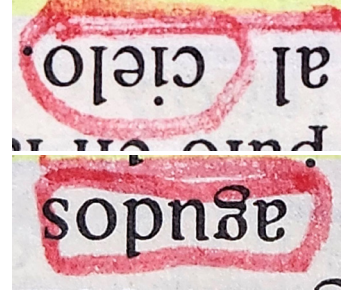 al cielo.
agudos